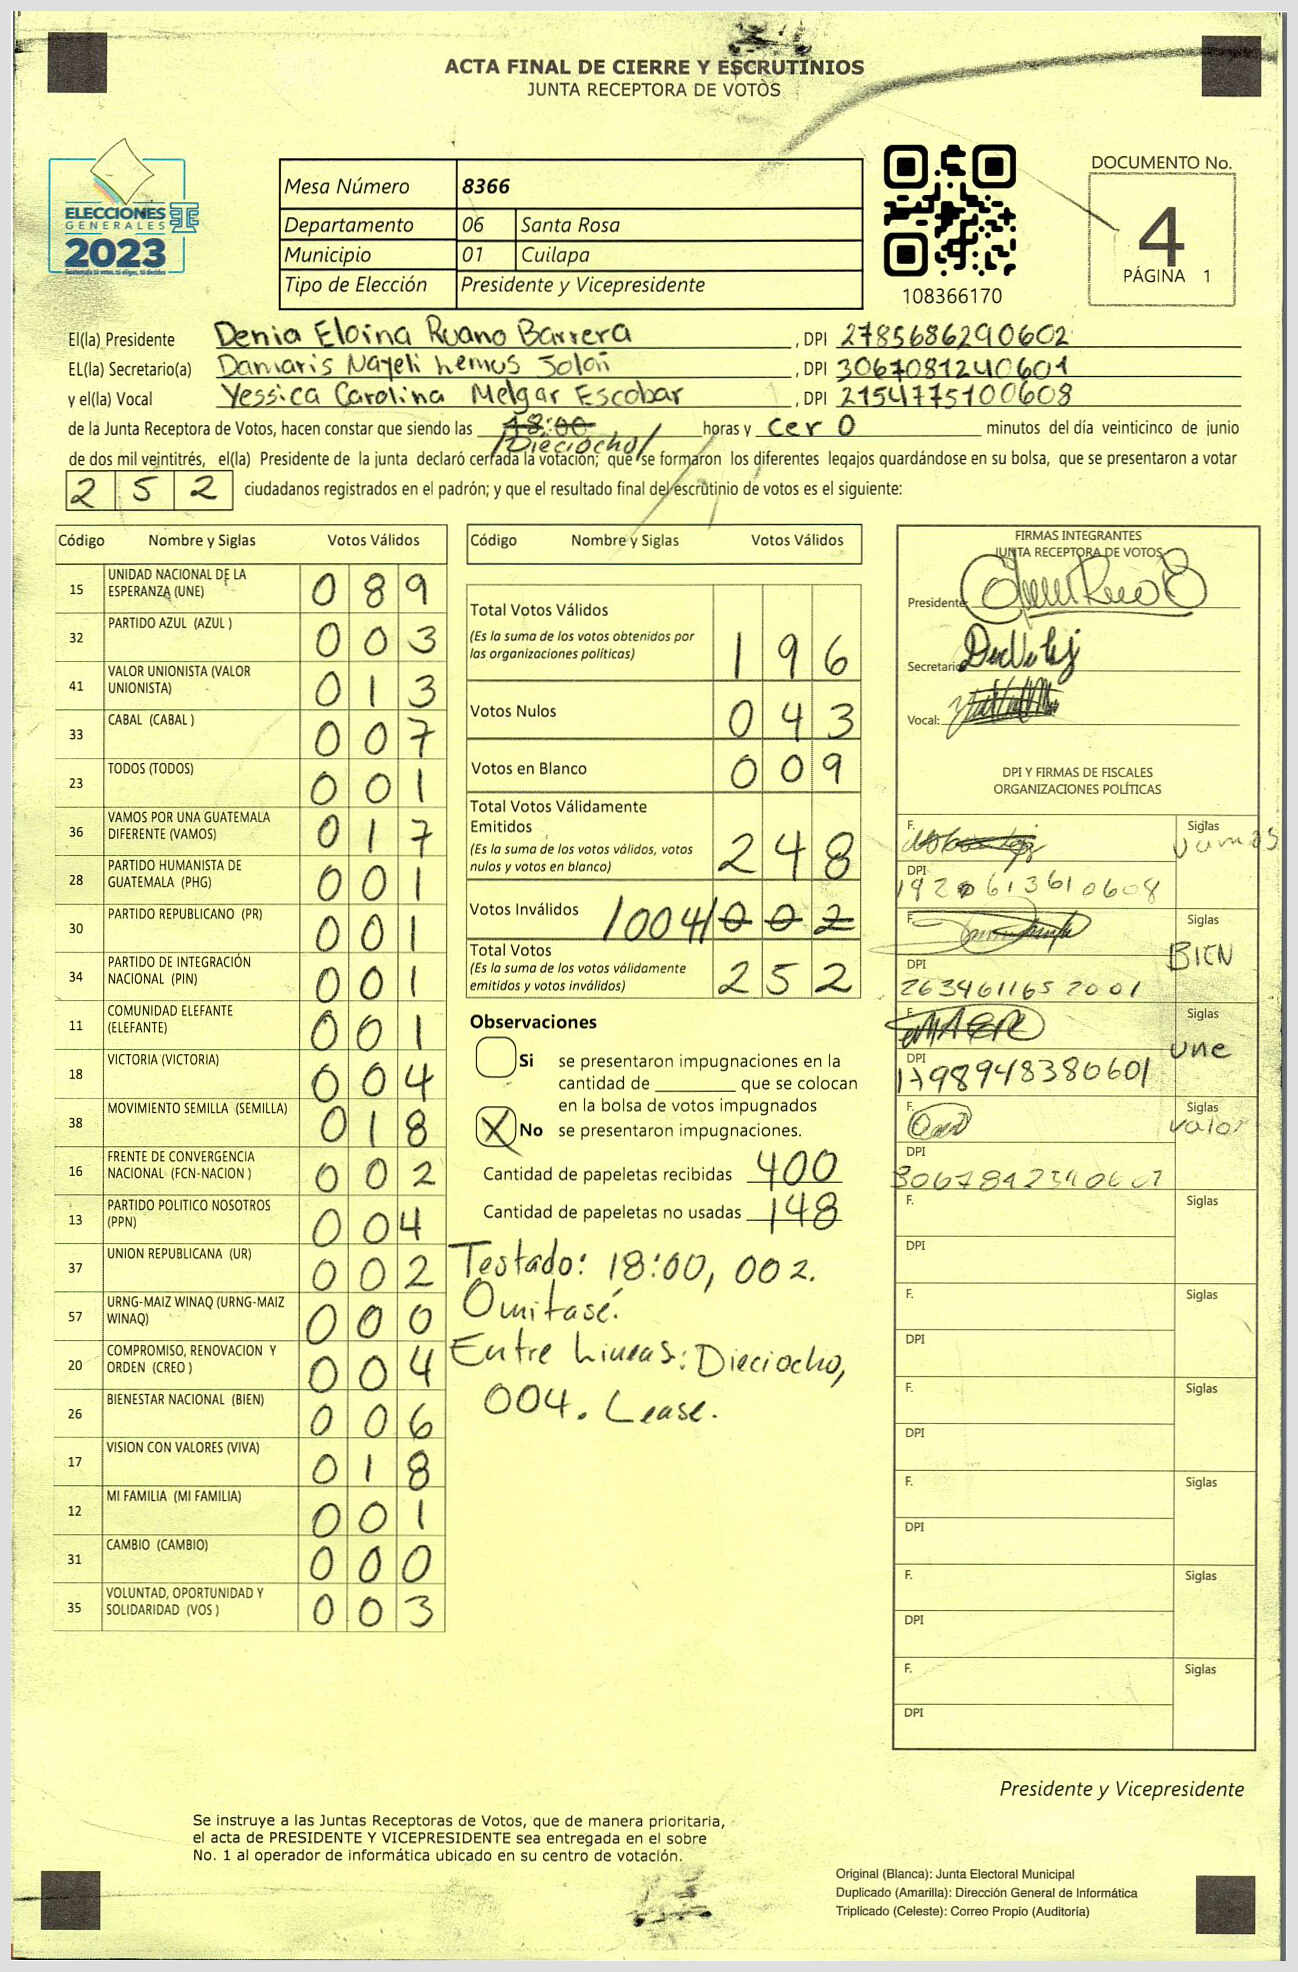 ACTA FINAL DE CIERRE Y ESCRUTINIOS
JUNTA RECEPTORA DE VOTOS
ELECCIONES
GENERALES
2023
Guatemala tú votas, tú eliges, tú decides
Mesa Número 8366
Departamento 06 Santa Rosa
Municipio 01 Cuilapa
Tipo de Elección Presidente y Vicepresidente
108366170
DOCUMENTO No.
4
PÁGINA 1
El(la) Presidente Denia Eloina Ruano Barrera, DPI 2785686290602
EL(la) Secretario(a) Damaris Nayeli Lemus Jolón, DPI 3067081240601
y el(la) Vocal Yessica Carolina Melgar Escobar, DPI 2154775100608
de la Junta Receptora de Votos, hacen constar que siendo las 18:00 /Dieciocho/ horas y cero minutos del día veinticinco de junio
de dos mil veintitrés, el(la) Presidente de la junta declaró cerrada la votación; que se formaron los diferentes legajos guardándose en su bolsa, que se presentaron a votar
252 ciudadanos registrados en el padrón; y que el resultado final del escrutinio de votos es el siguiente:
Código Nombre y Siglas Votos Válidos
15 UNIDAD NACIONAL DE LA ESPERANZA (UNE) 089
32 PARTIDO AZUL (AZUL ) 003
41 VALOR UNIONISTA (VALOR UNIONISTA) 013
33 CABAL (CABAL ) 007
23 TODOS (TODOS) 001
36 VAMOS POR UNA GUATEMALA DIFERENTE (VAMOS) 017
28 PARTIDO HUMANISTA DE GUATEMALA (PHG) 001
30 PARTIDO REPUBLICANO (PR) 001
34 PARTIDO DE INTEGRACIÓN NACIONAL (PIN) 001
11 COMUNIDAD ELEFANTE (ELEFANTE) 001
18 VICTORIA (VICTORIA) 004
38 MOVIMIENTO SEMILLA (SEMILLA) 018
16 FRENTE DE CONVERGENCIA NACIONAL (FCN-NACION ) 002
13 PARTIDO POLITICO NOSOTROS (PPN) 004
37 UNION REPUBLICANA (UR) 002
57 URNG-MAIZ WINAQ (URNG-MAIZ WINAQ) 000
20 COMPROMISO, RENOVACION Y ORDEN (CREO ) 004
26 BIENESTAR NACIONAL (BIEN) 006
17 VISION CON VALORES (VIVA) 018
12 MI FAMILIA (MI FAMILIA) 001
31 CAMBIO (CAMBIO) 000
35 VOLUNTAD, OPORTUNIDAD Y SOLIDARIDAD (VOS ) 003
Código Nombre y Siglas Votos Válidos
Total Votos Válidos 196
(Es la suma de los votos obtenidos por
las organizaciones políticas)
Votos Nulos 043
Votos en Blanco 009
Total Votos Válidamente
Emitidos 248
(Es la suma de los votos válidos, votos
nulos y votos en blanco)
Votos Inválidos /004/ 002
Total Votos 252
(Es la suma de los votos válidamente
emitidos y votos inválidos)
Observaciones
Si se presentaron impugnaciones en la
cantidad de ________ que se colocan
en la bolsa de votos impugnados
X No se presentaron impugnaciones.
Cantidad de papeletas recibidas 400
Cantidad de papeletas no usadas 148
Testado: 18:00, 002.
Omitasé.
Entre Lineas: Dieciocho,
004. Lease.
FIRMAS INTEGRANTES
JUNTA RECEPTORA DE VOTOS
Presidente:
Secretario:
Vocal:
DPI Y FIRMAS DE FISCALES
ORGANIZACIONES POLÍTICAS
F. Siglas
Vamos
DPI
1920613610608
F. Siglas
BIEN
DPI
2634611652001
F. Siglas
une
DPI
1798948380601
F. Siglas
valor
DPI
F. Siglas
DPI
F. Siglas
DPI
F. Siglas
DPI
F. Siglas
DPI
F. Siglas
DPI
F. Siglas
DPI
Presidente y Vicepresidente
Se instruye a las Juntas Receptoras de Votos, que de manera prioritaria,
el acta de PRESIDENTE Y VICEPRESIDENTE sea entregada en el sobre
No. 1 al operador de informática ubicado en su centro de votación.
Original (Blanca): Junta Electoral Municipal
Duplicado (Amarilla): Dirección General de Informática
Triplicado (Celeste): Correo Propio (Auditoría)